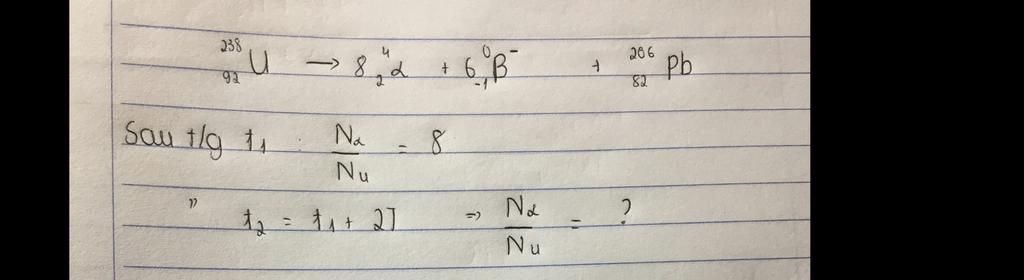 ²³⁸₉₂U → 8 ⁴₂α + 6 ⁰₋₁β⁻ + ²⁰⁶₈₂Pb
Sau t/g t₁ : Nα/Nu = 8
" t₂ = t₁ + 2T => Nα/Nu = ?